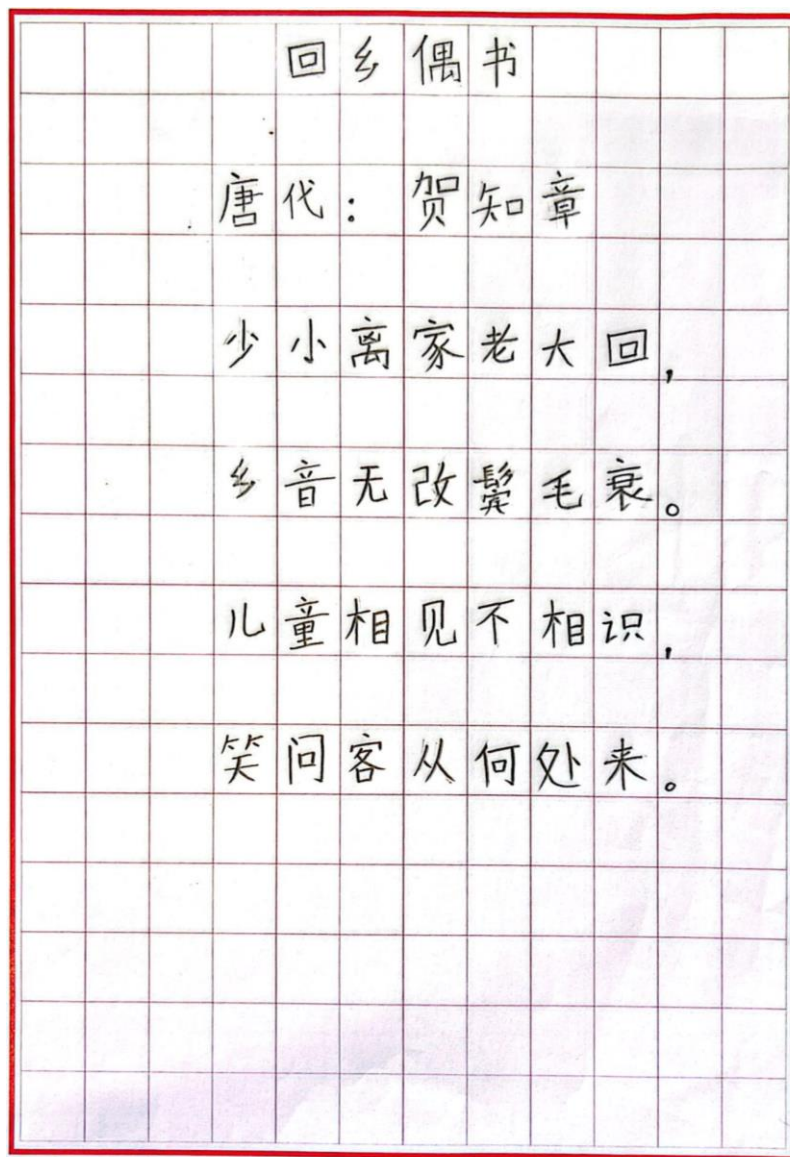 回乡偶书
唐代：贺知章
少小离家老大回，
乡音无改鬓毛衰。
儿童相见不相识，
笑问客从何处来。